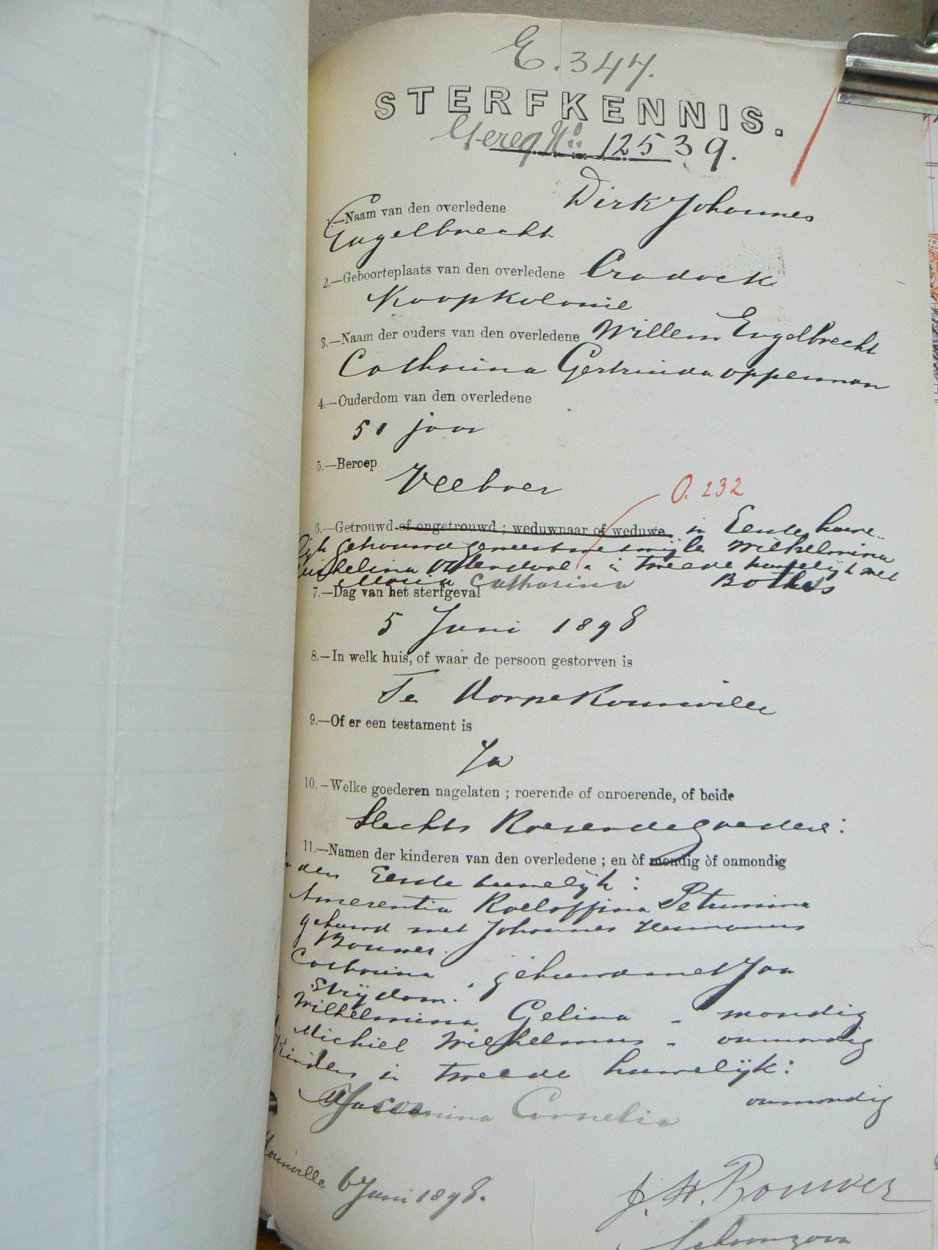 E. 347.
STERFKENNIS.
Gereg No. 12539.
1.—Naam van den overledene Dirk Johannes
Engelbrecht
2.—Geboorteplaats van den overledene Cradock
Kaapkolonie
3.—Naam der ouders van den overledene Willem Engelbrecht
Catharina Gertruida Opperman
4.—Ouderdom van den overledene
51 jaar
5.—Beroep Veeboer
O. 232
6.—Getrouwd of ongetrouwd ; weduwnaar of weduwe. in Eerste huwe-
lijk getrouwd geweest met wijle Wilhelmina
in tweede huwelijk met
Maria Catharina Botha
7.—Dag van het sterfgeval
5 Juni 1898
8.—In welk huis, of waar de persoon gestorven is
Te Dorpe Kouxville
9.—Of er een testament is
Ja
10.—Welke goederen nagelaten ; roerende of onroerende, of beide
Slechts Roerende goederen:
11.—Namen der kinderen van den overledene ; en òf mondig òf onmondig
den Eerste huwelijk:
Emerentia Roeloffina Petrusina
gehuwd met Johannes Hermanus
Bouwer.
Catharina gehuwd met Jan
Strijdom.
Wilhelmina Gelina - mondig
Michiel Wilhelmus - onmondig
Kinders in tweede huwelijk:
Cornelia onmondig
6 Juni 1898.
J. H. Bouwer
Schoonzoon